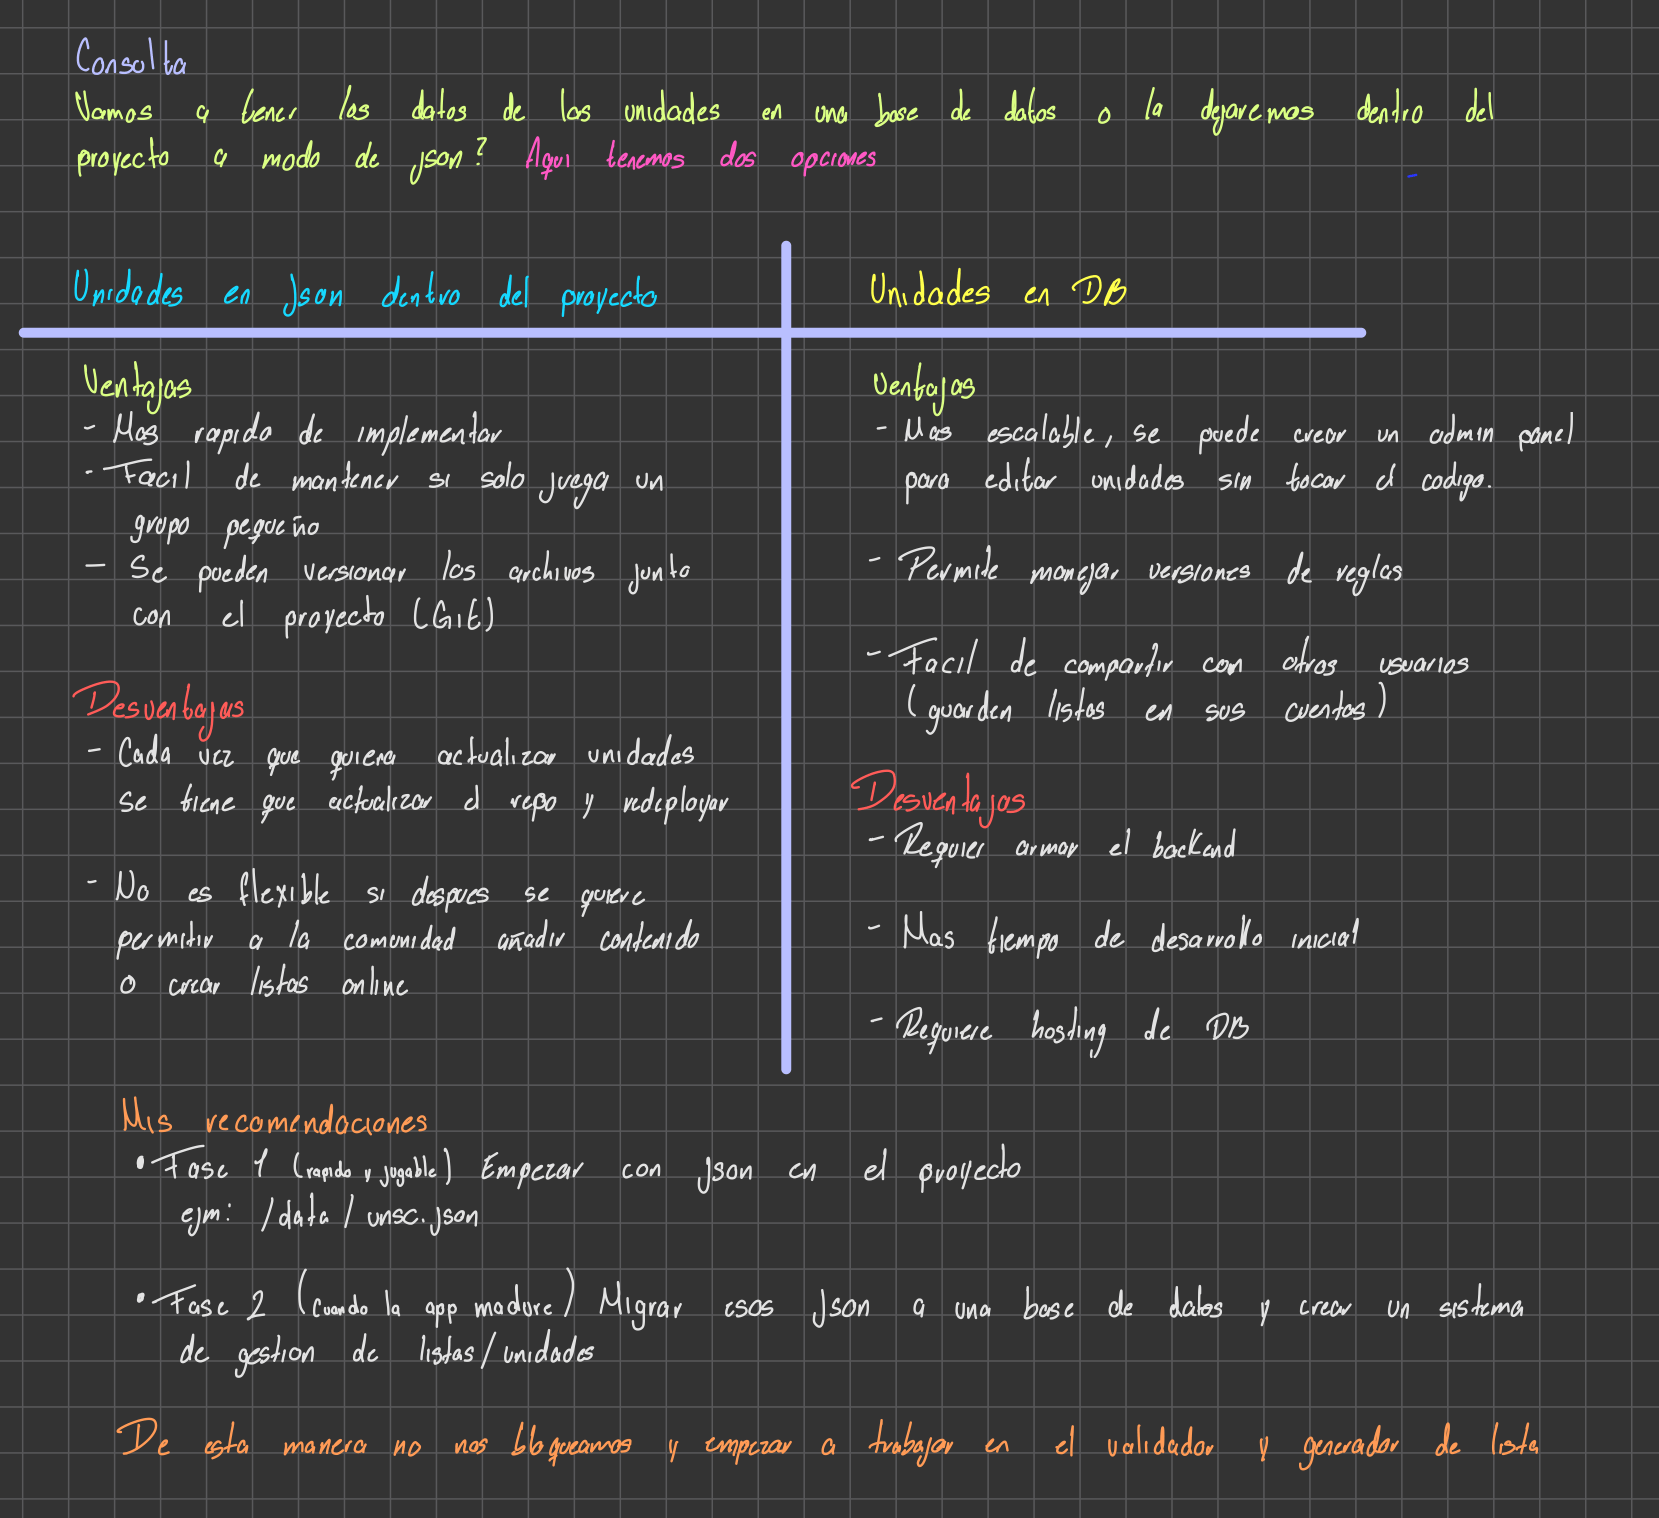 Consulta
Vamos a tener los datos de las unidades en una base de datos o la dejaremos dentro del
proyecto a modo de json? Aqui tenemos dos opciones
Unidades en json dentro del proyecto
Ventajas
- Mas rapido de implementar
- Facil de mantener si solo juega un
grupo pequeño
- Se pueden versionar los archivos junto
con el proyecto (Git)
Desventajas
- Cada vez que quiera actualizar unidades
se tiene que actualizar el repo y redeployar
- No es flexible si despues se quiere
permitir a la comunidad añadir contenido
o crear listas online
Unidades en DB
Ventajas
- Mas escalable, se puede crear un admin panel
para editar unidades sin tocar el codigo.
- Permite manejar versiones de reglas
- Facil de compartir con otros usuarios
(guarden listas en sus cuentas)
Desventajas
- Requier armar el backend
- Mas tiempo de desarrollo inicial
- Requiere hosting de DB
Mis recomendaciones
• Fase 1 (rapido y jugable) Empezar con json en el proyecto
ejm: /data/unsc.json
• Fase 2 (cuando la app madure) Migrar esos json a una base de datos y crear un sistema
de gestion de listas/unidades
De esta manera no nos bloqueamos y empezar a trabajar en el validador y generador de lista